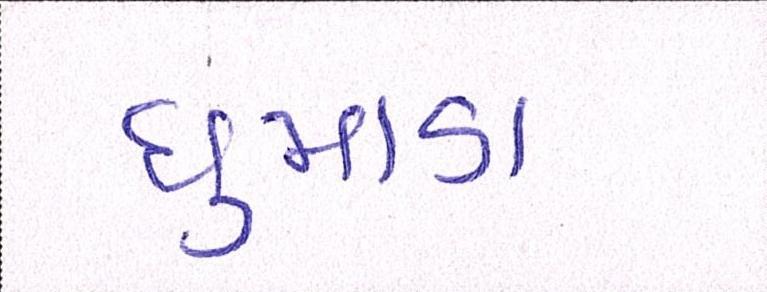 ધુમાડા